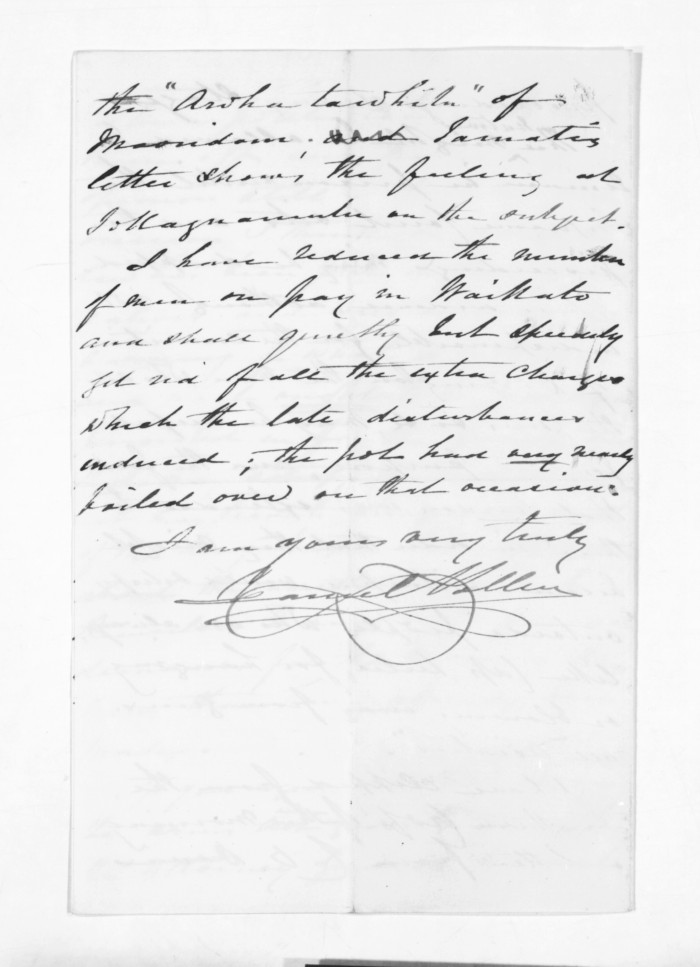 the "Aroha tawhito" of
Maoridom. and Tamati's
letter shows the feeling at
on the subject.
I have reduced the number
of men on pay in Waikato
and shall quietly but speedily
get rid of all the extra charges
which the late disturbances
induced; the pot had very nearly
boiled over on that occasion.
I am yours very truly